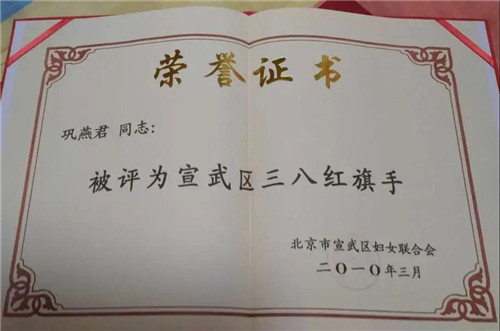 荣誉证书
巩燕君 同志：
被评为宣武区三八红旗手
北京市宣武区妇女联合会
二〇一〇年三月